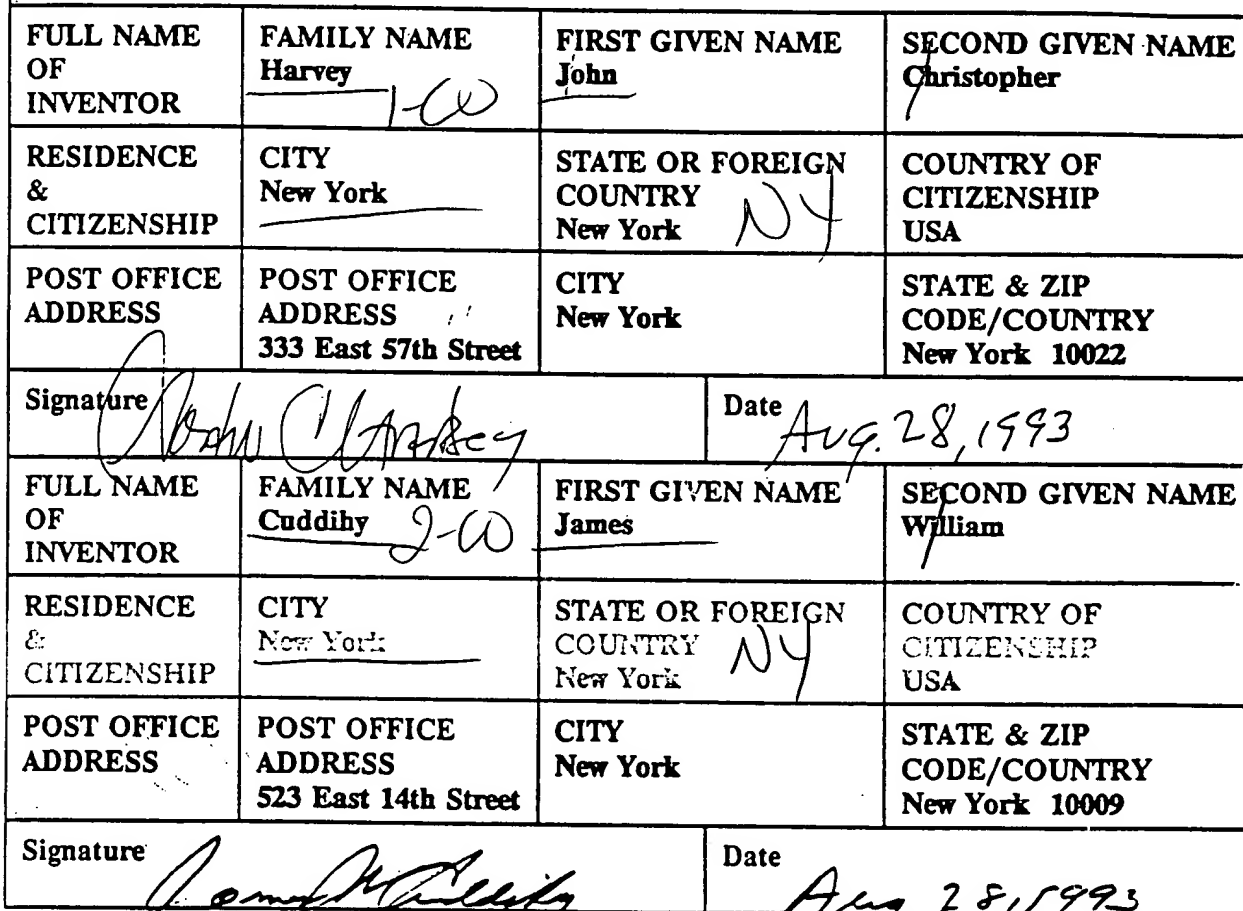 FULL NAME OF INVENTOR
FAMILY NAME
Harvey
1-00
FIRST GIVEN NAME
John
SECOND GIVEN NAME
Christopher
RESIDENCE & CITIZENSHIP
CITY
New York
STATE OR FOREIGN COUNTRY
New York NY
COUNTRY OF CITIZENSHIP
USA
POST OFFICE ADDRESS
POST OFFICE ADDRESS
333 East 57th Street
CITY
New York
STATE & ZIP CODE/COUNTRY
New York 10022
Signature John C Harvey
Date Aug. 28, 1993
FULL NAME OF INVENTOR
FAMILY NAME
Cuddihy 2-00
FIRST GIVEN NAME
James
SECOND GIVEN NAME
William
RESIDENCE & CITIZENSHIP
CITY
New York
STATE OR FOREIGN COUNTRY
New York NY
COUNTRY OF CITIZENSHIP
USA
POST OFFICE ADDRESS
POST OFFICE ADDRESS
523 East 14th Street
CITY
New York
STATE & ZIP CODE/COUNTRY
New York 10009
Signature James W Cuddihy
Date Aug 28, 1993